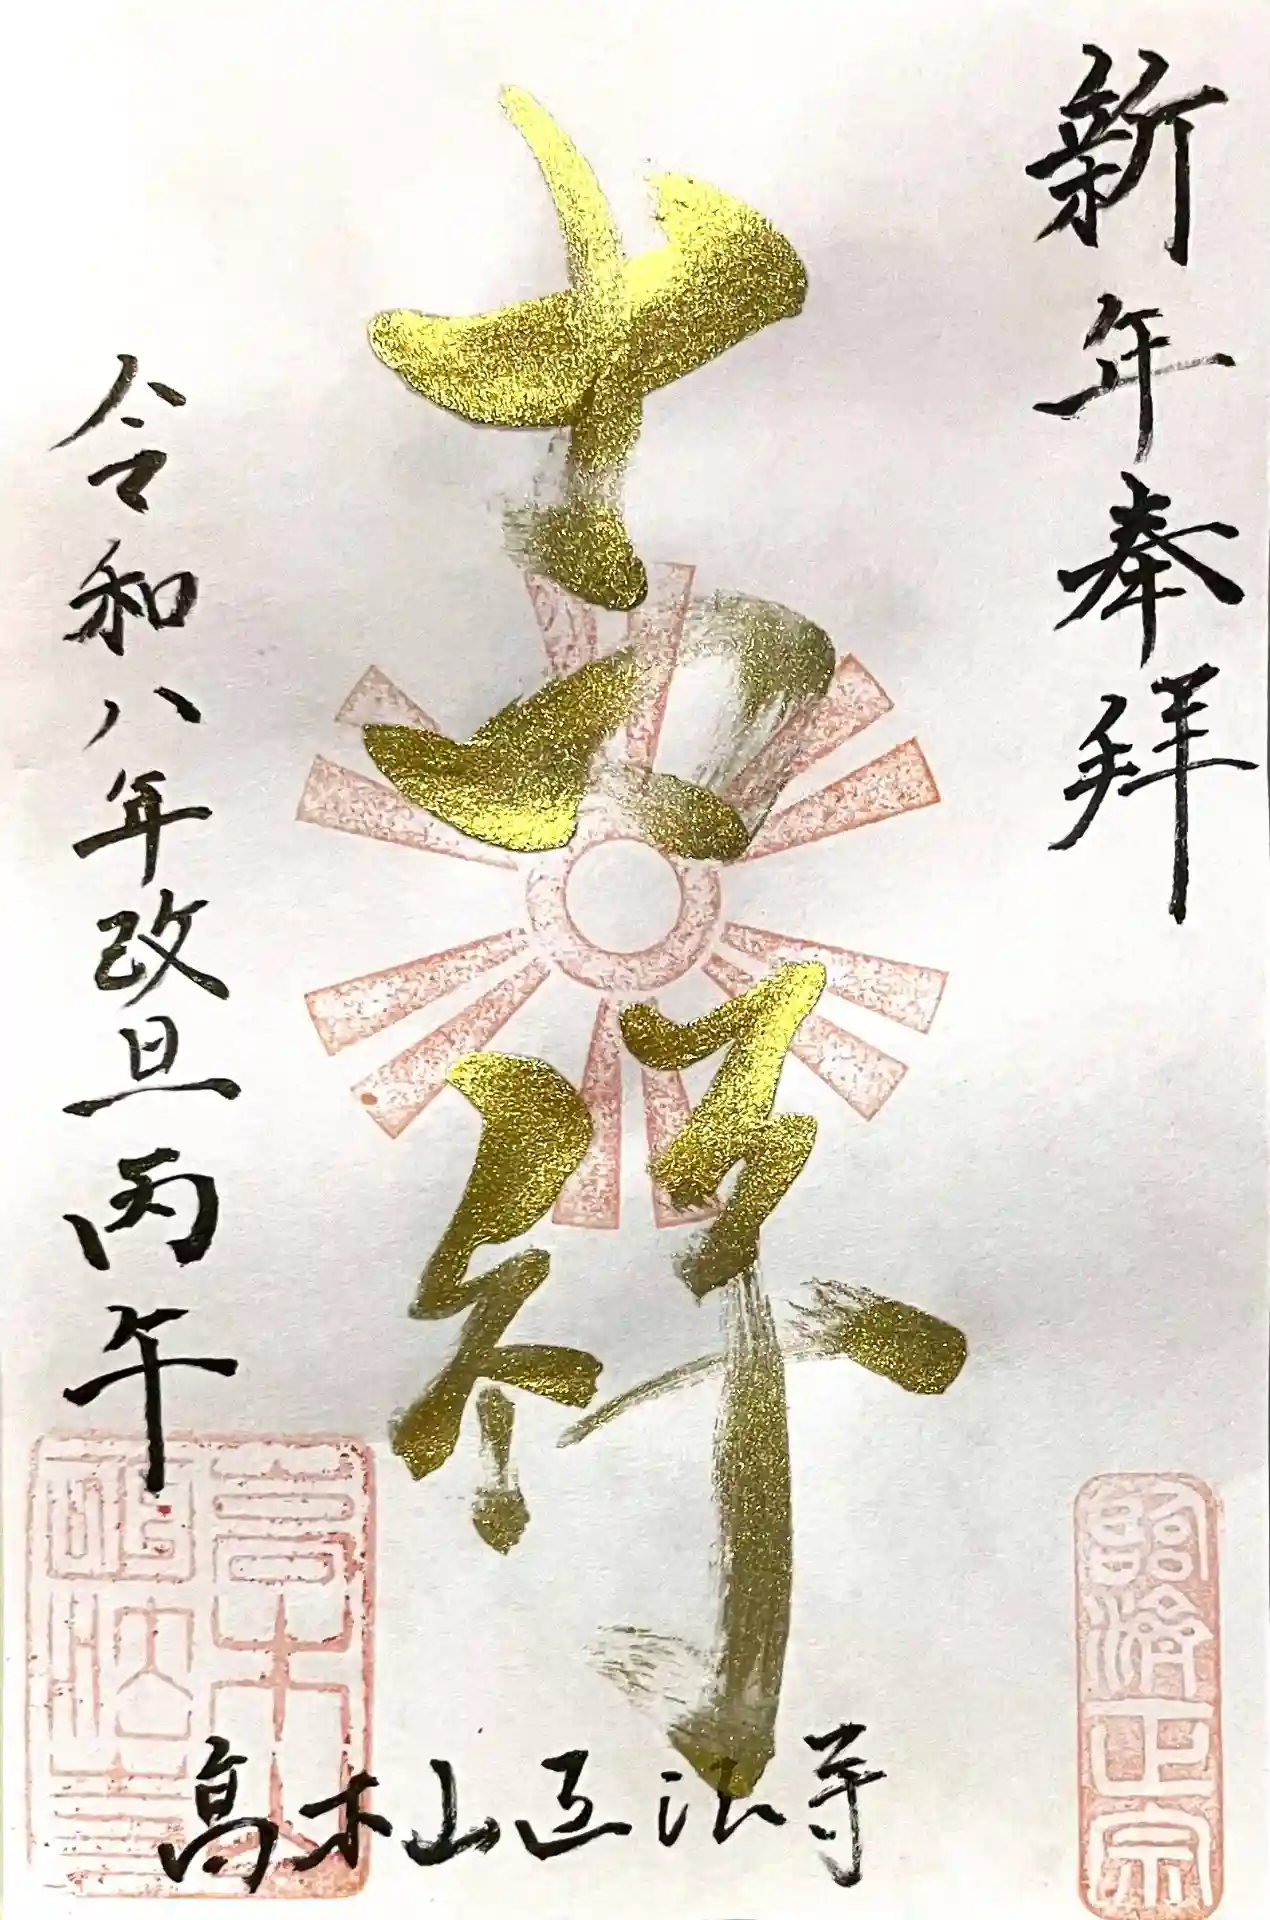 新年奉拝
吉祥
令和八年改旦丙午
高木山法寺
臨濟正宗